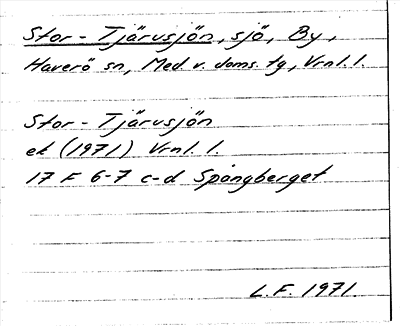 Stor-Tjärusjön, sjö, By,
Haverö sn, Med. v. doms. tg, Vrnl. l.
Stor-Tjärusjön
ek (1971) Vrnl. l.
17 F 6-7 c-d Spångberget
L.F. 1971.